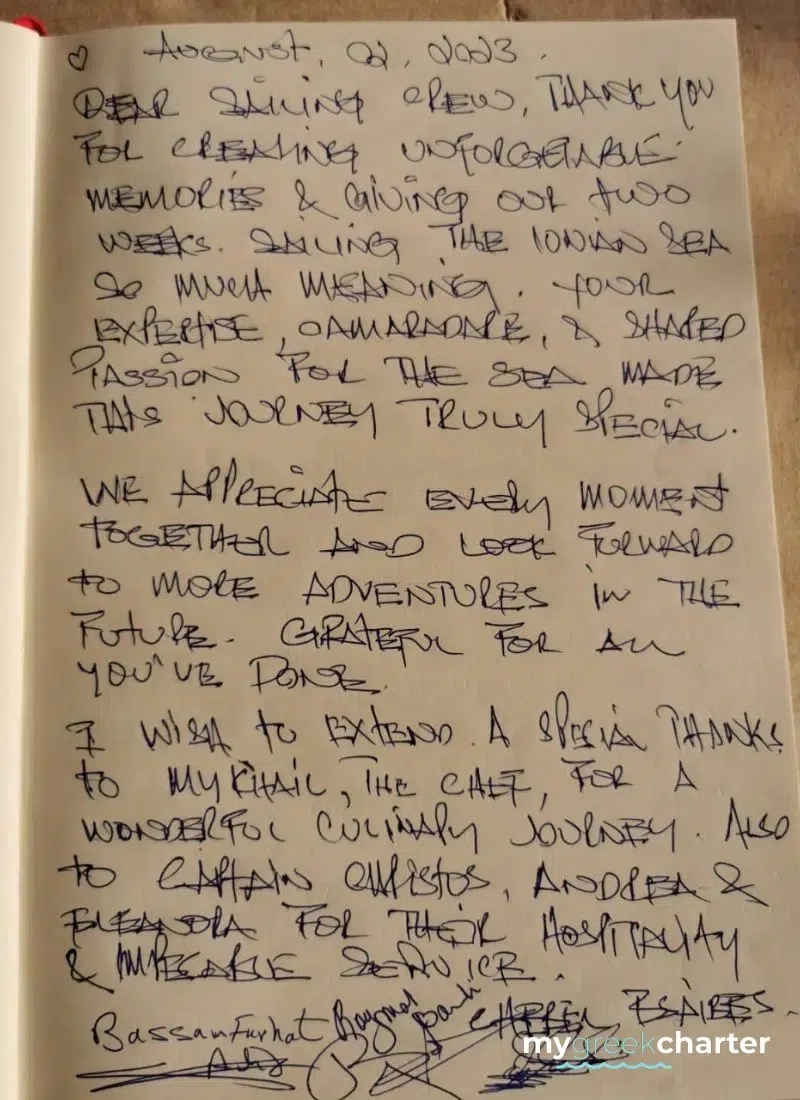 ♡ AUGUST, 02, 2023.
DEAR SAILING CREW, THANK YOU
FOR CREATING UNFORGETABLE
MEMORIES & GIVING OUR TWO
WEEKS. SAILING THE IONIAN SEA
SO MUCH MEANING. YOUR
EXPERTISE, CAMARADARE, & SHARED
PASSION FOR THE SEA MADE
THIS JOURNEY TRULY SPECIAL.
WE APPRECIATE EVERY MOMENT
TOGETHER AND LOOK FORWARD
TO MORE ADVENTURES IN THE
FUTURE. GRATEFUL FOR ALL
YOU'VE DONE.
I WISH TO EXTEND A SPECIAL THANKS
TO MYKHAIL, THE CHEF, FOR A
WONDERFUL CULINARY JOURNEY. ALSO
TO CAPTAIN CHRISTOS, ANDREA &
ELEANORA FOR THEIR HOSPITALITY
& IMPECABLE SERVICE.
Bassam Furhat
mygreekcharter